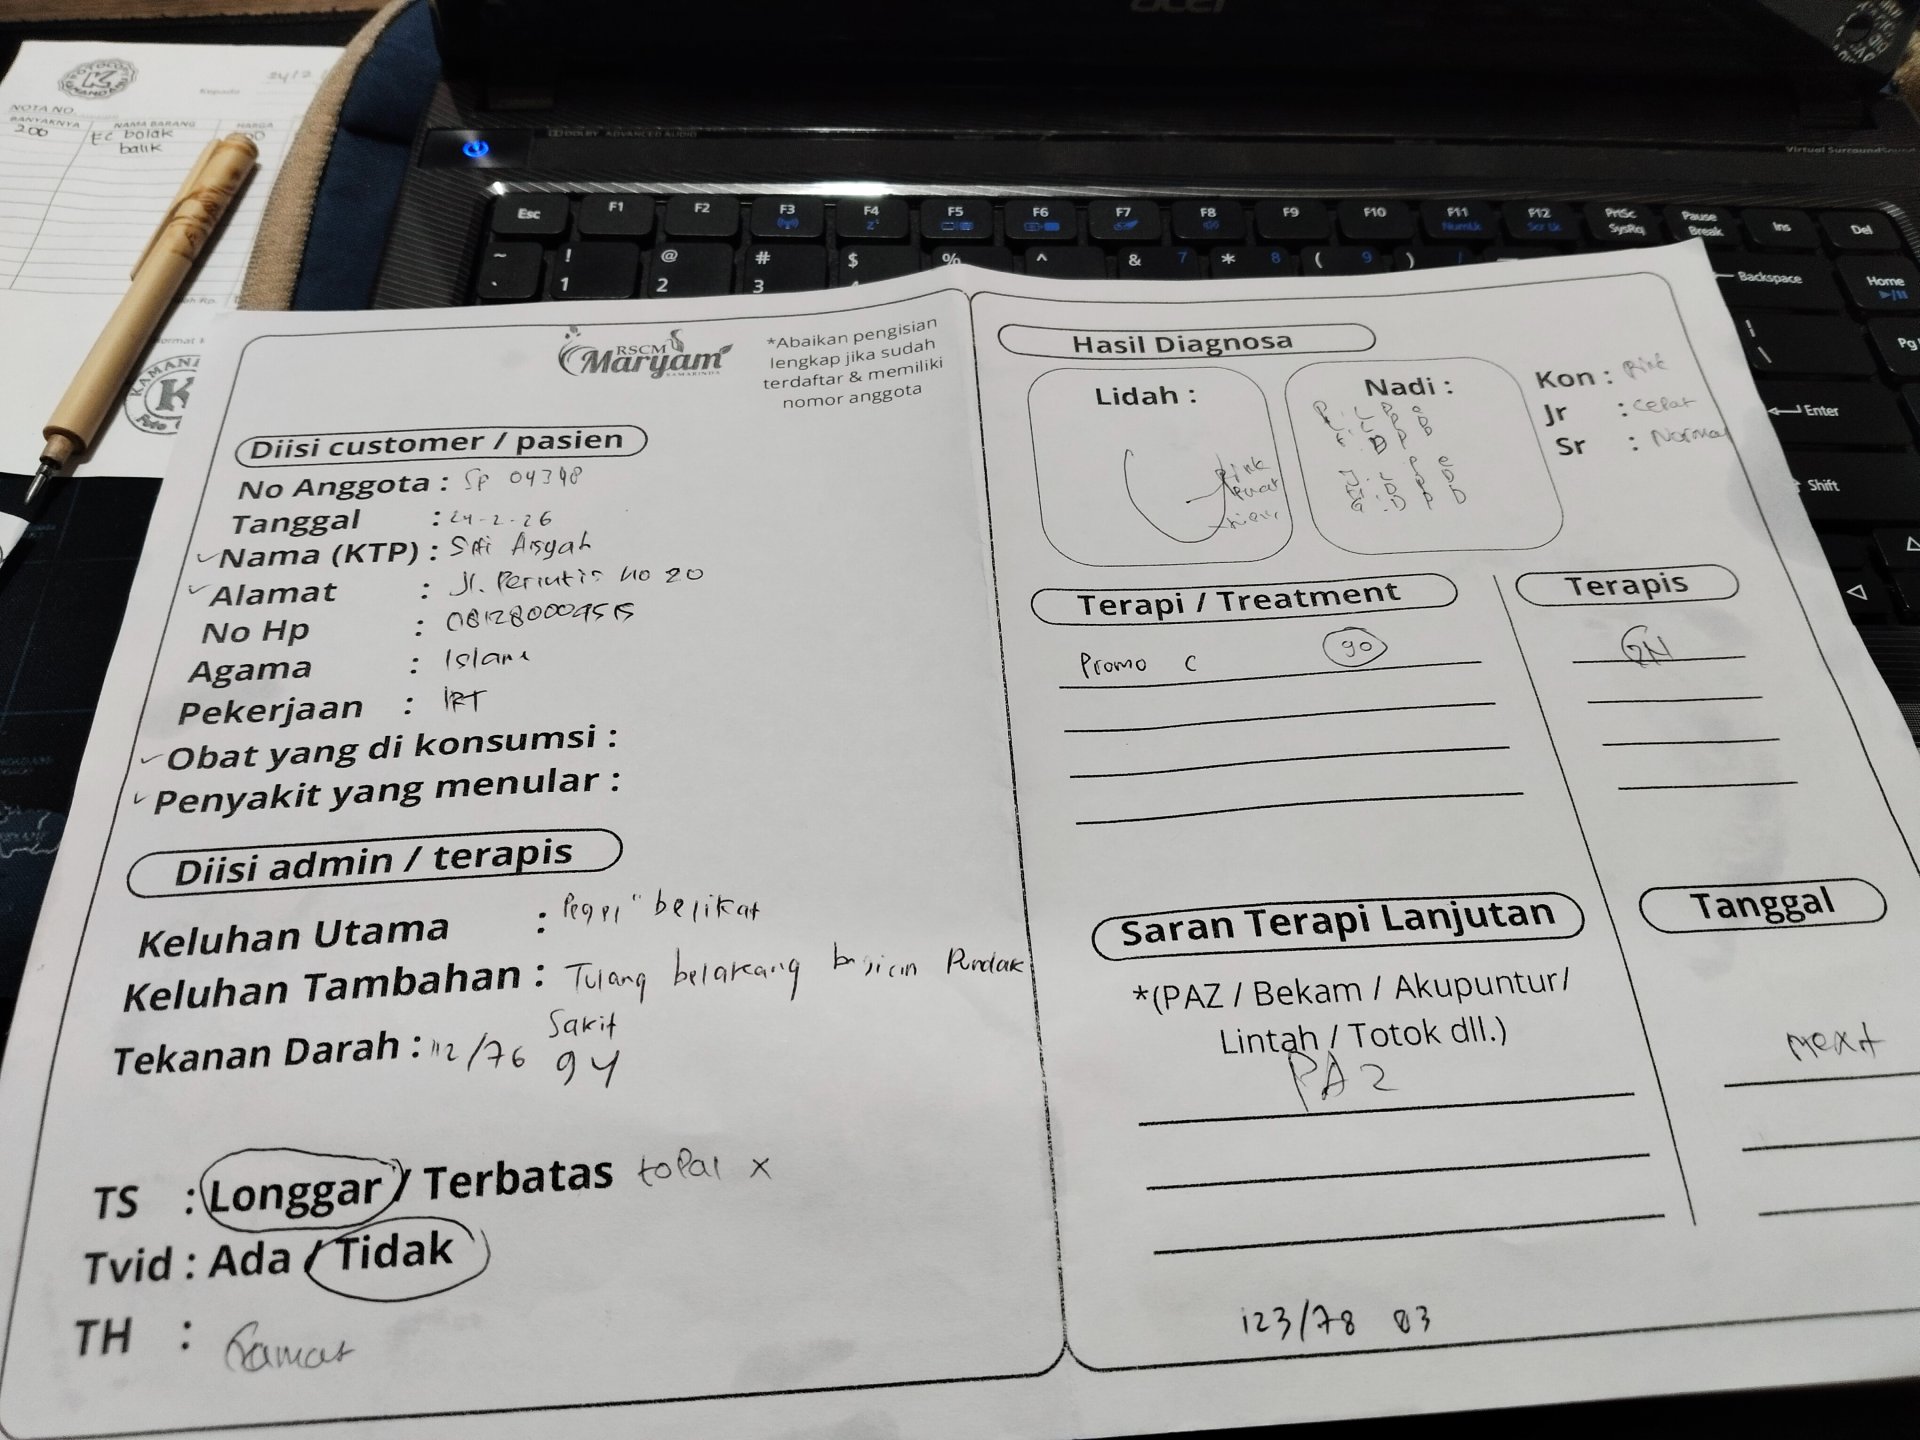 acer
DOLBY ADVANCED AUDIO
Virtual SurroundSound
Esc F1 F2 F3 F4 F5 F6 F7 F8 F9 F10 F11 F12 PrtSc Pause Ins Del
NumLk Scr Lk SysRq Break
~ ! @ # $ % ^ & 7 * 8 ( 9 ) /
1 2 3
Backspace Home
Pg
Enter
Shift
FOTOCOPY
K
24/2
Kepada
NOTA NO.
BANYAKNYA NAMA BARANG HARGA
200 FC bolak
balik
Rp.
K
RSCM
Maryam
SAMARINDA
*Abaikan pengisian
lengkap jika sudah
terdaftar & memiliki
nomor anggota
Diisi customer / pasien
No Anggota : SP 04348
Tanggal : 24-2-26
Nama (KTP) : Siti Aisyah
Alamat : Jl. Perintis no 20
No Hp : 081280009515
Agama : Islam
Pekerjaan : IRT
Obat yang di konsumsi :
Penyakit yang menular :
Diisi admin / terapis
Keluhan Utama : Pegel" belikat
Keluhan Tambahan : Tulang belakang bagian Pundak
Sakit
Tekanan Darah : 112/76 94
TS : Longgar / Terbatas topar x
Tvid : Ada / Tidak
TH : Samar
Hasil Diagnosa
Lidah :
Pink
Nadi :
Kon : Pink
Jr : cepat
Sr : Normal
Terapi / Treatment
Promo C 90
Terapis
Saran Terapi Lanjutan
*(PAZ / Bekam / Akupuntur/
Lintah / Totok dll.)
PAZ
Tanggal
next
123/78 83